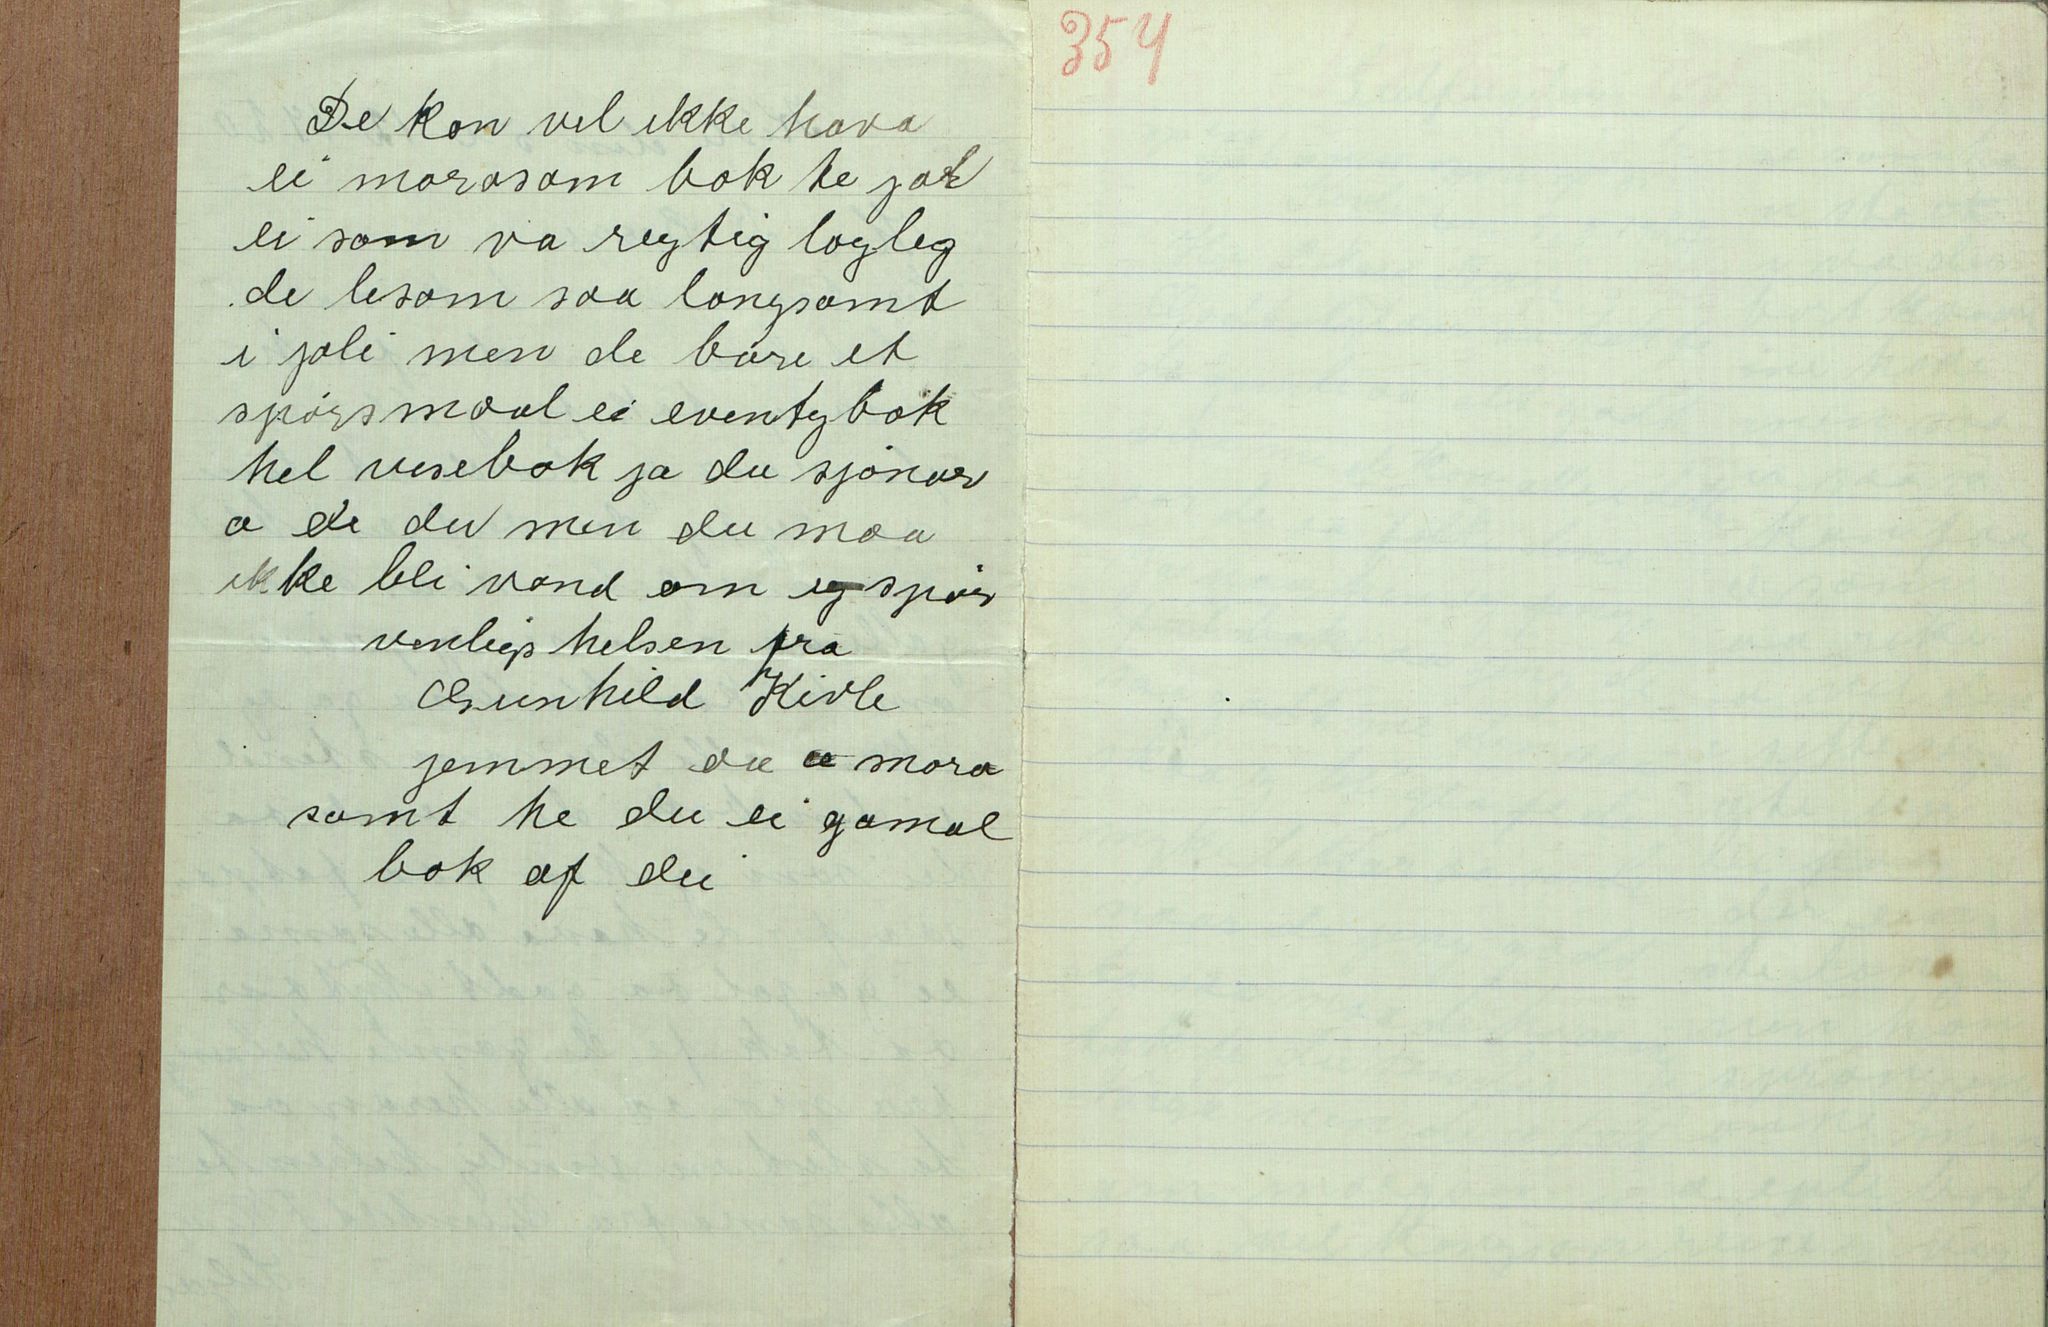 De kan vel ikke hava
ei morosam bok te jol
ei som va regtig logleg
de lesom saa langsamt
i joli men de bare et
spörsmaal ei eventybok
hel visebok ja du sjönar
a de du men du maa
ikke bli vond om eg spör
venleis helsen fra
Gunhild Kivle
jemmet du a mora
samt he du ei gamal
bok af dei
354